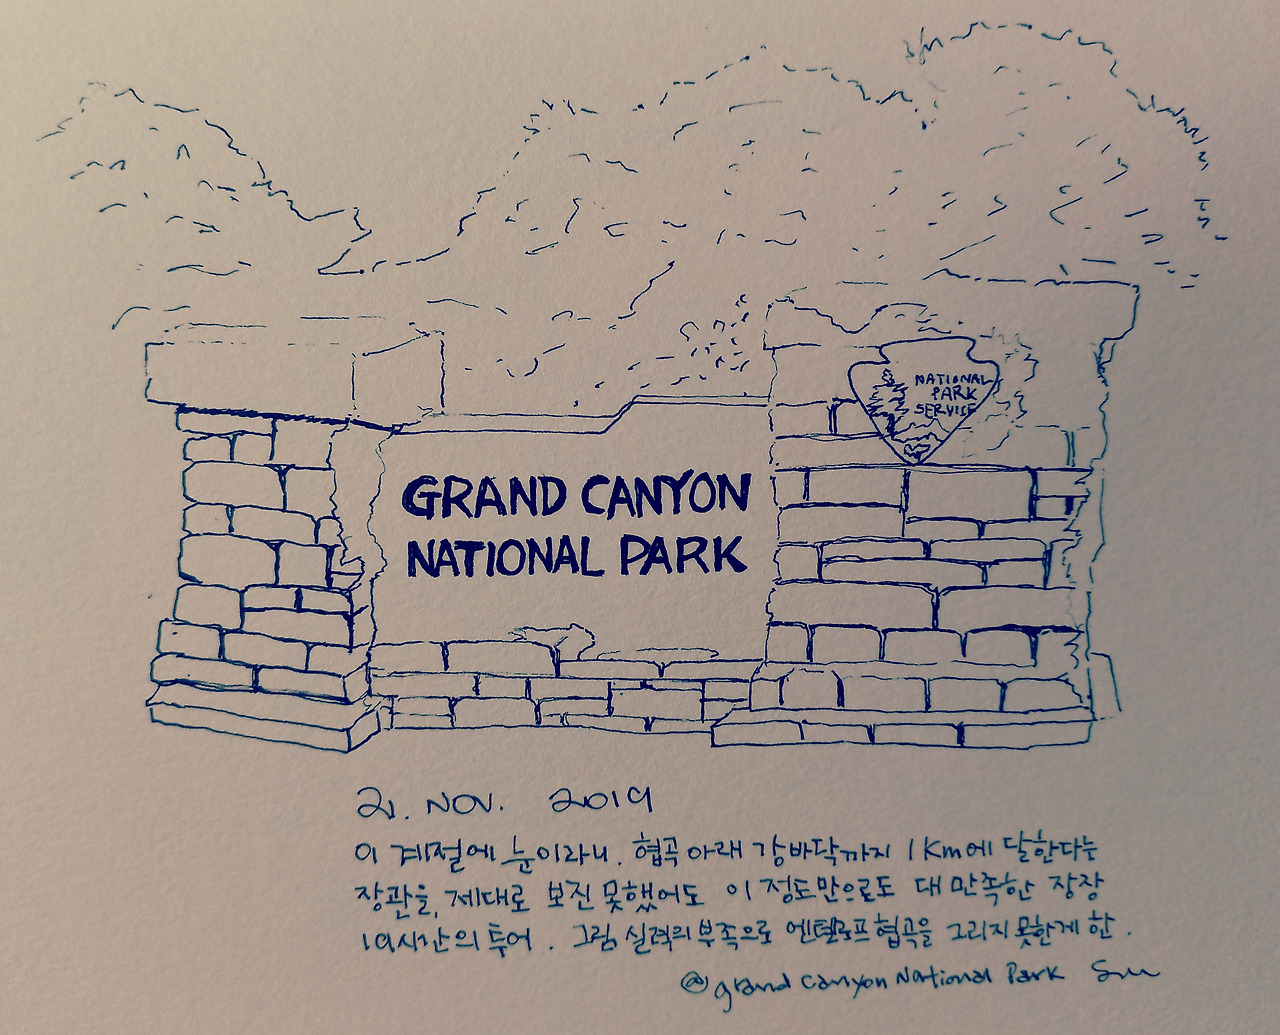 NATIONAL
PARK
SERVICE
GRAND CANYON
NATIONAL PARK
21. NOV. 2019
이 계절에 눈이라니. 협곡 아래 강바닥까지 1Km에 달한다는
장관을, 제대로 보진 못했어도 이 정도만으로도 대만족한 장장
19시간의 투어. 그림 실력의 부족으로 엔텔로프 협곡을 그리지 못한게 한.
@grand canyon National Park